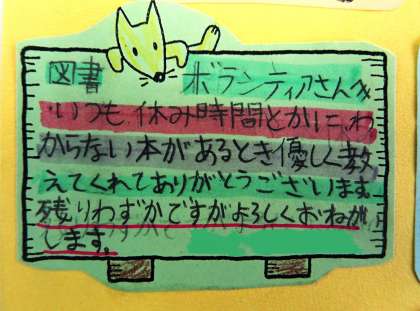 図書 ボランティアさんへ
いつも休み時間とかに、わ
からない本があるとき優しく教
えてくれてありがとうございます。
残りわずかですがよろしくおねがい
します。